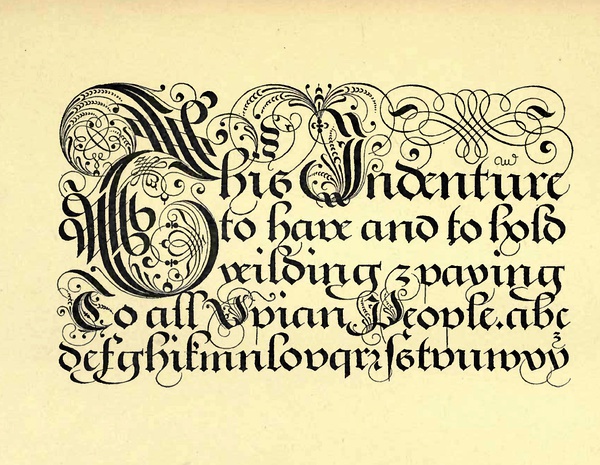 This Indenture
to have and to hold
yeilding & paying
To all Xpian People. abc